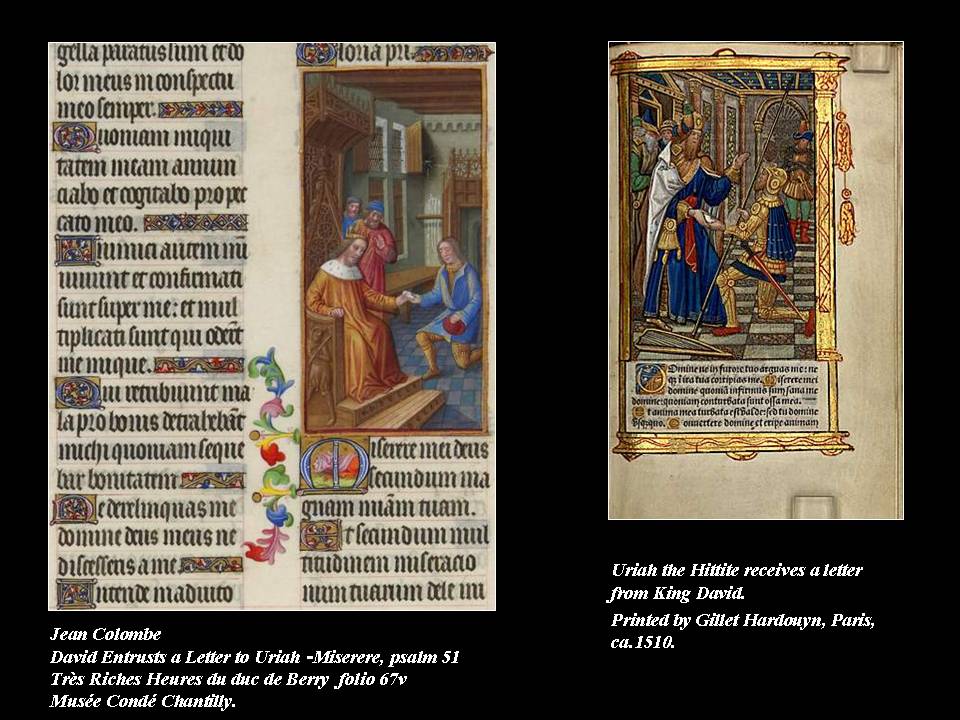 gella paratus sum et do
lor meus in conspectu
meo semper.
Quoniam iniqui
tatem meam annun
ciabo et cogitabo pro pec
cato meo.
Inimici autem mei
vivunt et confirmati
sunt super me: et mul
tiplicati sunt qui oderūt
me inique.
Qui retribuunt ma
la pro bonis detrahebāt
michi quoniam seque
bar bonitatem.
Ne derelinquas me
domine deus meus ne
discesseris a me.
Intende in adiuto
Gloria pri.
Miserere mei deus
secundum ma
gnam miām tuam.
Et secundum mul
titudinem miseracio
num tuarum dele ini
Jean Colombe
David Entrusts a Letter to Uriah -Miserere, psalm 51
Très Riches Heures du duc de Berry folio 67v
Musée Condé Chantilly.
Domine ne in furore tuo arguas me: ne
ira tua corripias me. Miserere mei
domine quoniā infirmus sum sana me
domine: quoniam conturbata sunt ossa mea.
Et anima mea turbata est valde: sed tu domine
Convertere domine et eripe animam
Uriah the Hittite receives a letter
from King David.
Printed by Gillet Hardouyn, Paris,
ca.1510.